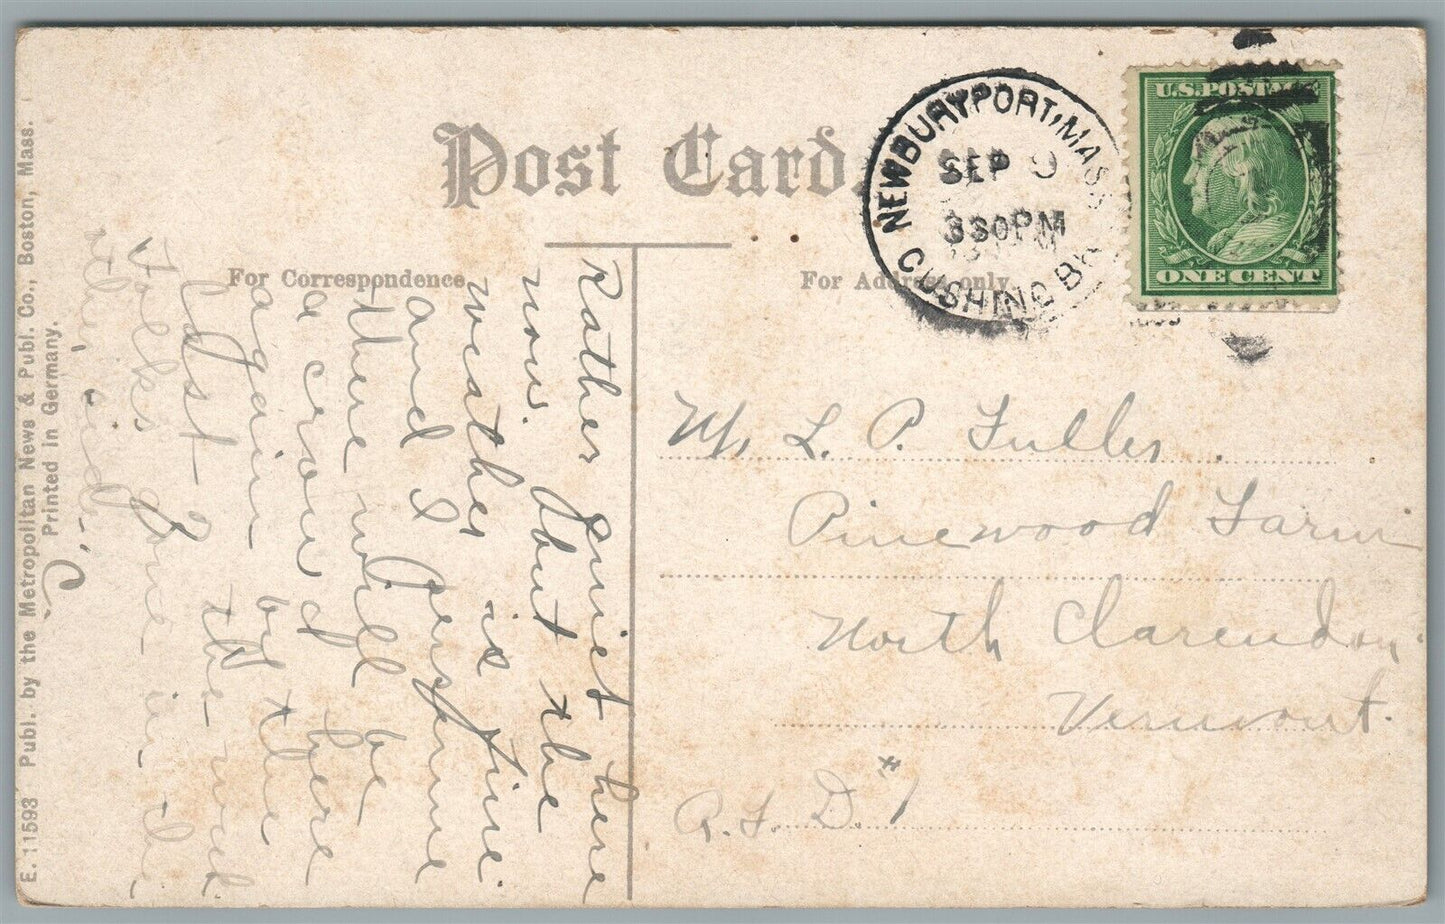 Post Card.
For Correspondence.
For Address only.
NEWBURYPORT, MASS
SEP 9
330PM
CUSHING BR.
U.S. POSTAGE
ONE CENT
Rather quiet here
now. But the
weather is fine
and I persume
there will be
a crowd here
again by the
last the week
Talks fine in the
idea and
C.
Mr L. P. Fuller
Pinewood Farm
North Clarendon
Vermont.
R. F. D. #1
E. 11593 Publ. by the Metropolitan News & Publ. Co., Boston, Mass.
Printed in Germany.